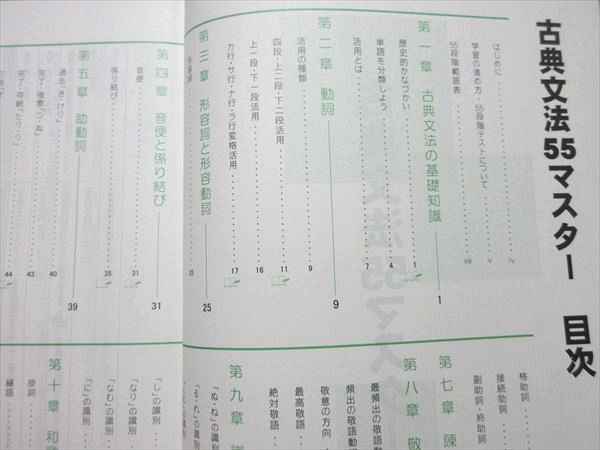 古典文法55マスター 目次
はじめに iv
学習の進め方・55段階テストについて v
55段階範囲表 viii
第一章 古典文法の基礎知識 1
歴史的かなづかい 1
単語を分類しよう 4
活用とは 7
第二章 動詞 9
活用の種類 9
四段・上二段・下二段活用 11
上一段・下一段活用 16
カ行・サ行・ナ行・ラ行変格活用 17
第三章 形容詞と形容動詞 25
25
第四章 音便と係り結び 31
音便 31
係り結び 35
第五章 助動詞 39
過去「き・けり」 40
完了・強意「つ・ぬ」 43
完了・存続「たり・り」 44
格助詞
接続助詞
副助詞・終助詞
第七章 陳
第八章 敬
最頻出の敬語動
頻出の敬語動詞
敬意の方向
最高敬語
絶対敬語
第九章 識
「ぬ・ね」の識別
「る・れ」の識別
「し」の識別
「なり」の識別
「なむ」の識別
「に」の識別
第十章 和歌
掛詞
縁語